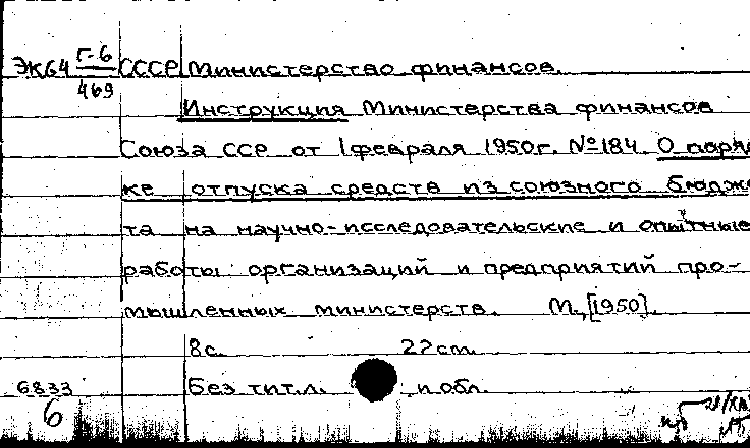 ЭК64 Г-6/469 СССР Министерство финансов.
Инструкция Министерства финансов
Союза ССР от 1 февраля 1950г. №184. О поряд
ке отпуска средств из союзного бюдже
та на научно-исследовательские и опытные
работы организаций и предприятий про-
мышленных министерств. М.,[1950].
8с. 22cm.
6833 Без тит.л. и обл.
6